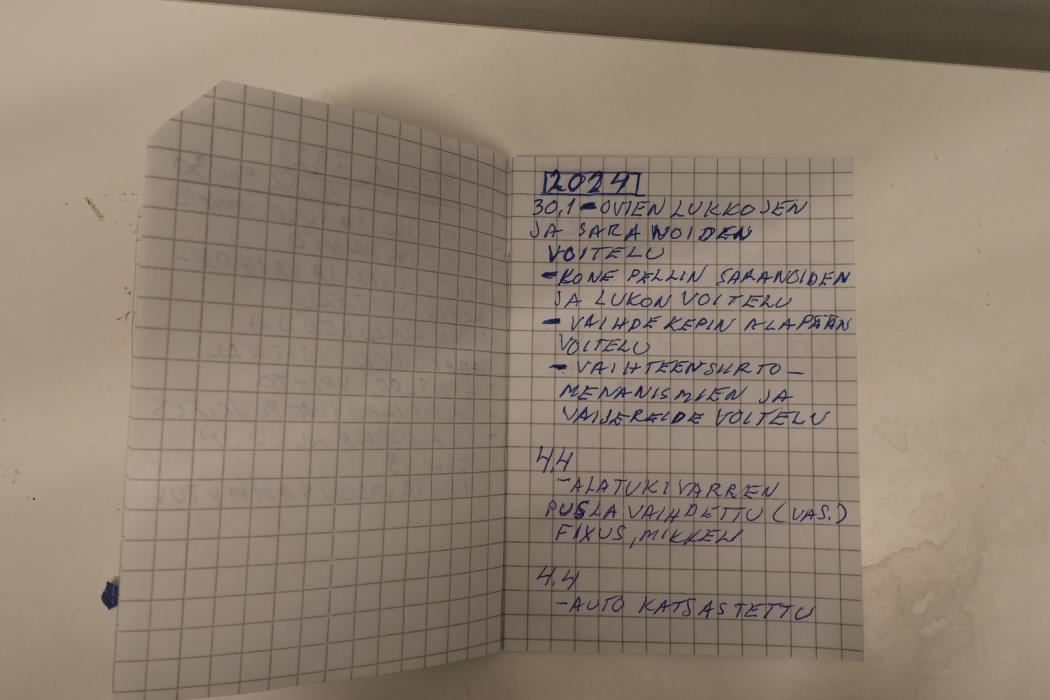 2024
30.1 - OVIEN LUKKOJEN
JA SARANOIDEN
VOITELU
- KONEPELLIN SARANOIDEN
JA LUKON VOITELU
- VAIHDEKEPIN ALAPÄÄN
VOITELU
- VAIHTEENSIIRTO-
MEKANISMIEN JA
VAIJEREIDE VOITELU
4.4
- ALATUKIVARREN
PUSLA VAIHDETTU (VAS.)
FIXUS, MIKKELI
4.4
- AUTO KATSASTETTU